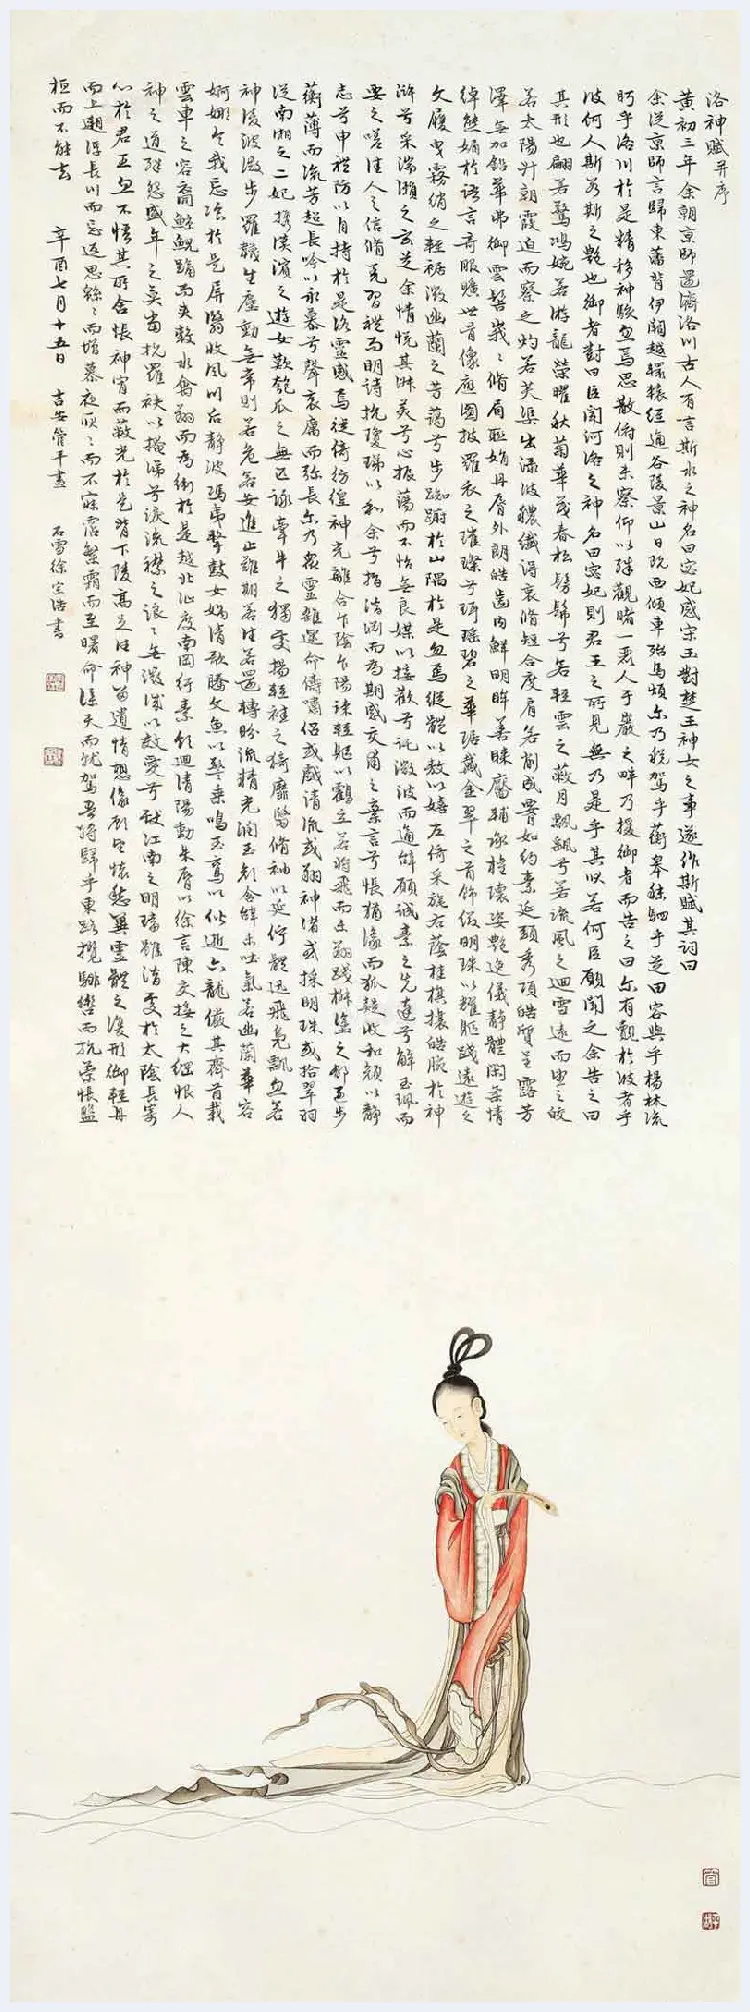 洛神賦并序
黃初三年余朝京師還濟洛川古人有言斯水之神名曰宓妃感宋玉對楚王神女之事遂作斯賦其詞曰
余從京師言歸東藩背伊闕越轘轅經通谷陵景山日既西傾車殆馬煩尔乃稅駕乎蘅皋秣駟乎芝田容與乎楊林流
眄乎洛川於是精移神駭忽焉思散俯則未察仰以殊觀睹一麗人于巖之畔乃援御者而告之曰尔有覿於彼者乎
彼何人斯若斯之艷也御者對曰臣聞河洛之神名曰宓妃則君王之所見無乃是乎其狀若何臣願聞之余告之曰
其形也翩若驚鴻婉若游龍榮曜秋菊華茂春松髣髴兮若輕雲之蔽月飄飄兮若流風之迴雪遠而望之皎
若太陽升朝霞迫而察之灼若芙蕖出淥波穠纖得衷脩短合度肩若削成署如約素延頸秀項皓質呈露芳
澤無加鉛華弗御雲髻峩〻脩眉聯娟丹脣外朗皓齒內鮮明眸善睞靨輔承權瓌姿艷逸儀靜體閑柔情
綽態媚於語言奇服曠世骨像應圖披羅衣之璀璨兮珥瑤碧之華琚戴金翠之首飾綴明珠以耀軀踐遠遊之
文履曳霧綃之輕裾微幽蘭之芳藹兮步踟躕於山隅於是忽焉縱體以遨以嬉左倚采旄右蔭桂旗攘皓腕於神
滸兮采湍瀨之玄芝余情悅其淑美兮心振蕩而不怡無良媒以接歡兮託微波而通辭願誠素之先達兮解玉珮而
要之嗟佳人之信脩羌習禮而明詩抗瓊珶以和余兮指潛淵而為期感交甫之棄言兮悵猶豫而狐疑收和顏以靜
志兮申禮防以自持於是洛靈感焉徙倚彷徨神光離合乍陰乍陽竦輕軀以鶴立若將飛而未翔踐椒塗之郁烈步
蘅薄而流芳超長吟以永慕兮聲哀厲而彌長尔乃眾靈雜遝命儔嘯侶或戲清流或翔神渚或採明珠或拾翠羽
從南湘之二妃攜漢濱之遊女歎匏瓜之無匹詠牽牛之獨處揚輕袿之猗靡翳脩袖以延佇體迅飛鳧飄忽若
神凌波微步羅韈生塵動無常則若危若安進止難期若往若還轉眄流精光潤玉顏含辭未吐氣若幽蘭華容
婀娜令我忘飡於是屏翳收風川后靜波馮夷擊鼓女媧清歌騰文魚以警乘鳴玉鸞以偕逝六龍儼其齊首載
雲車之容裔鯨鯢踴而夾轂水禽翔而為衛於是越北沚度南岡紆素領迴清陽動朱脣以徐言陳交接之大綱恨人
神之道殊怨盛年之莫當抗羅袂以掩涕兮淚流襟之浪〻無微情以效愛兮獻江南之明璫雖潛處於太陰長寄
心於君王忽不悟其所舍悵神宵而蔽光於是背下陵高足往神留遺情想像顧望懷愁冀靈體之復形御輕舟
而上遡浮長川而忘返思緜〻而增慕夜耿〻而不寐霑繁霜而至曙命僕夫而就駕吾將歸乎東路攬騑轡而抗策悵盤
桓而不能去 辛酉七月十五日 吉安管平畫 石雪徐宗浩書